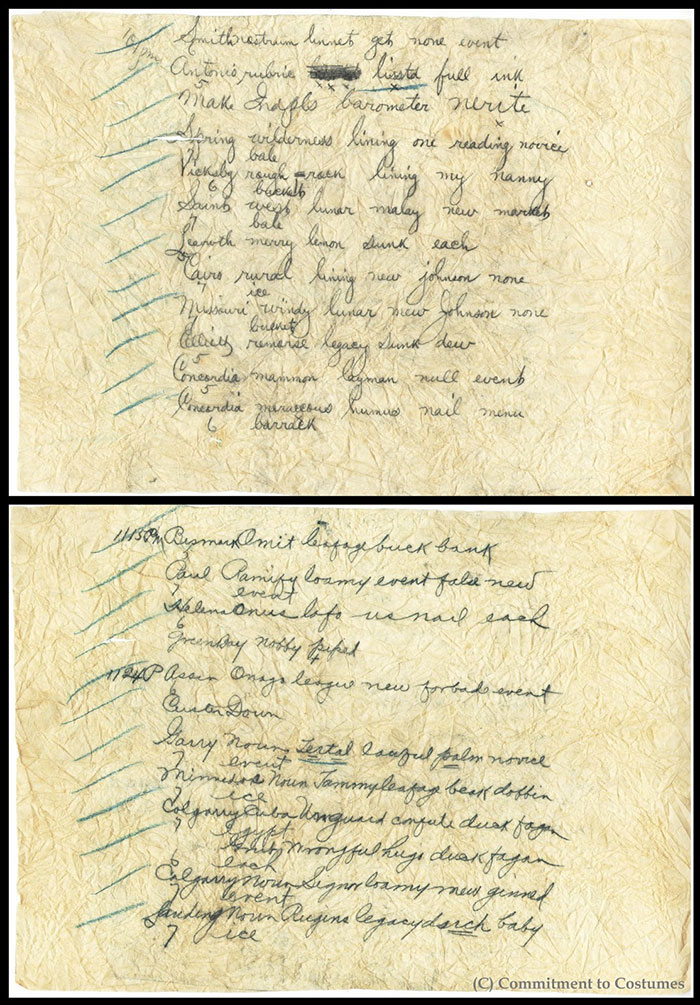 10pm
Smith nostrum linnet get none event
Antonio rubric lisstd full ink
5 x x x x
Make Indpls barometer nerite
x
Spring wilderness lining one reading novice
7 bale
Vicksbg rough rock lining my nanny
6 bucket
Saint west lunar malay new market
7 bale
Leavwth merry lemon sunk each
5
Cairo rural lining new johnson none
7 ice
Missouri windy lunar mew Johnson none
7 bucket
Elliott remorse legacy sunk dew
5
Concordia mammon layman null event
5
Concordia humus nail menu
6 barrack
1113 PM Bismark Omit leafage buck bank
5
Paul Ramify loamy event false new
7 event
Helena Onus lofo us nail each
6
Green Bay nobby piped
4
1124 P Assin Onago league new forbade event
Custer Down
Garry Noun Tertal lawful palm novice
7 event
Minnedos Noun Jammy leafage beak dobbin
7 ice
Calgarry Cuba Unguard confute duck fagan
7 egypt
Wrongful hugo duck fagan
6 each
Calgarry Noun Signor loamy mew ginned
7 event
Landing Noun Regina legacy dsrch baby
7 ice
(C) Commitment to Costumes